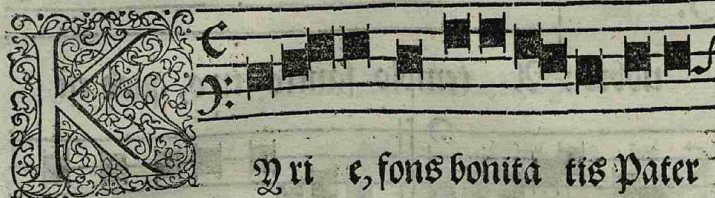 KYri e, fons bonita tis Pater